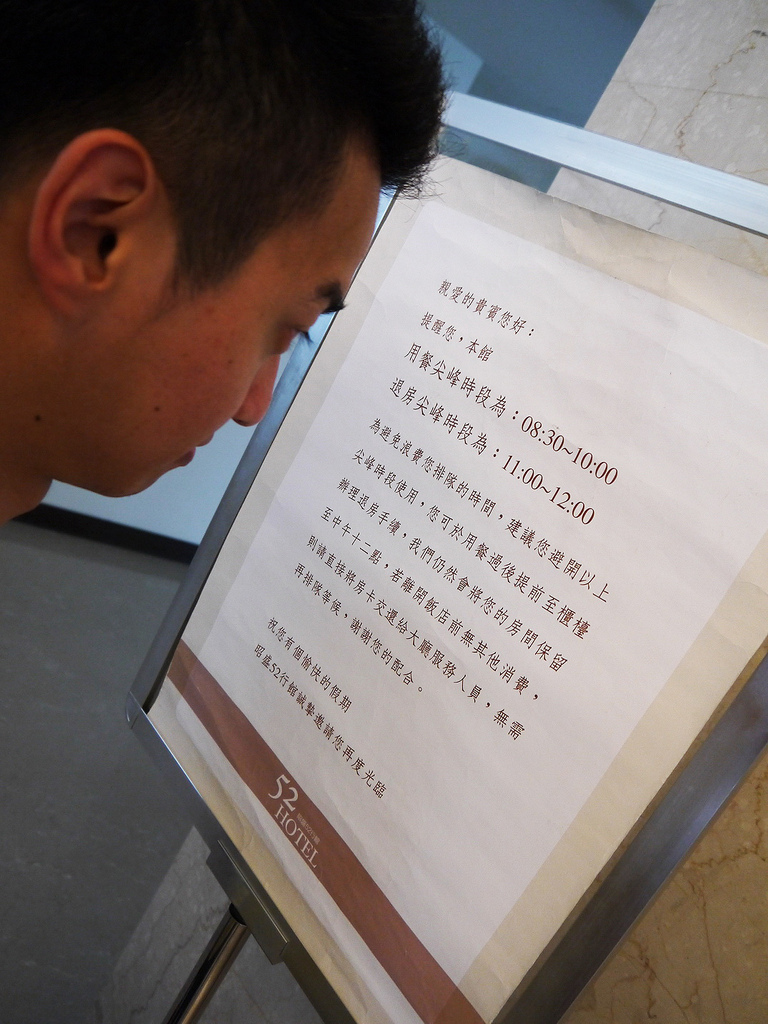 親愛的貴賓您好：
提醒您，本館
用餐尖峰時段為：08:30~10:00
退房尖峰時段為：11:00~12:00
為避免浪費您排隊的時間，建議您避開以上
尖峰時段使用，您可於用餐過後提前至櫃檯
辦理退房手續，我們仍然會將您的房間保留
至中午十二點，若離開飯店前無其他消費，
則請直接將房卡交還給大廳服務人員，無需
再排隊等候，謝謝您的配合。
祝您有個愉快的假期
昭盛52行館誠摯邀請您再度光臨
52
HOTEL